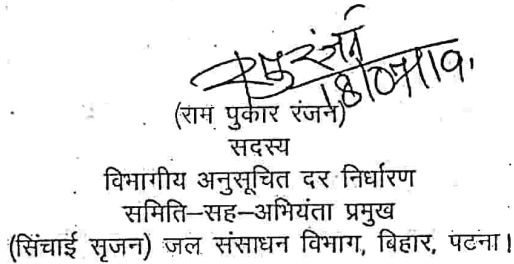 18/07/19.
(राम पुकार रंजन)
सदस्य
विभागीय अनुसूचित दर निर्धारण
समिति–सह–अभियंता प्रमुख
(सिंचाई सृजन) जल संसाधन विभाग, बिहार, पटना।